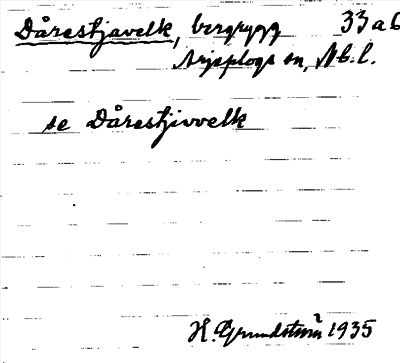 Dårrestjavelk, bergrygg 33 a b
Arjeplogs sn, Nb. l.
se Dårrestjivvelk
H. Grundström 1935